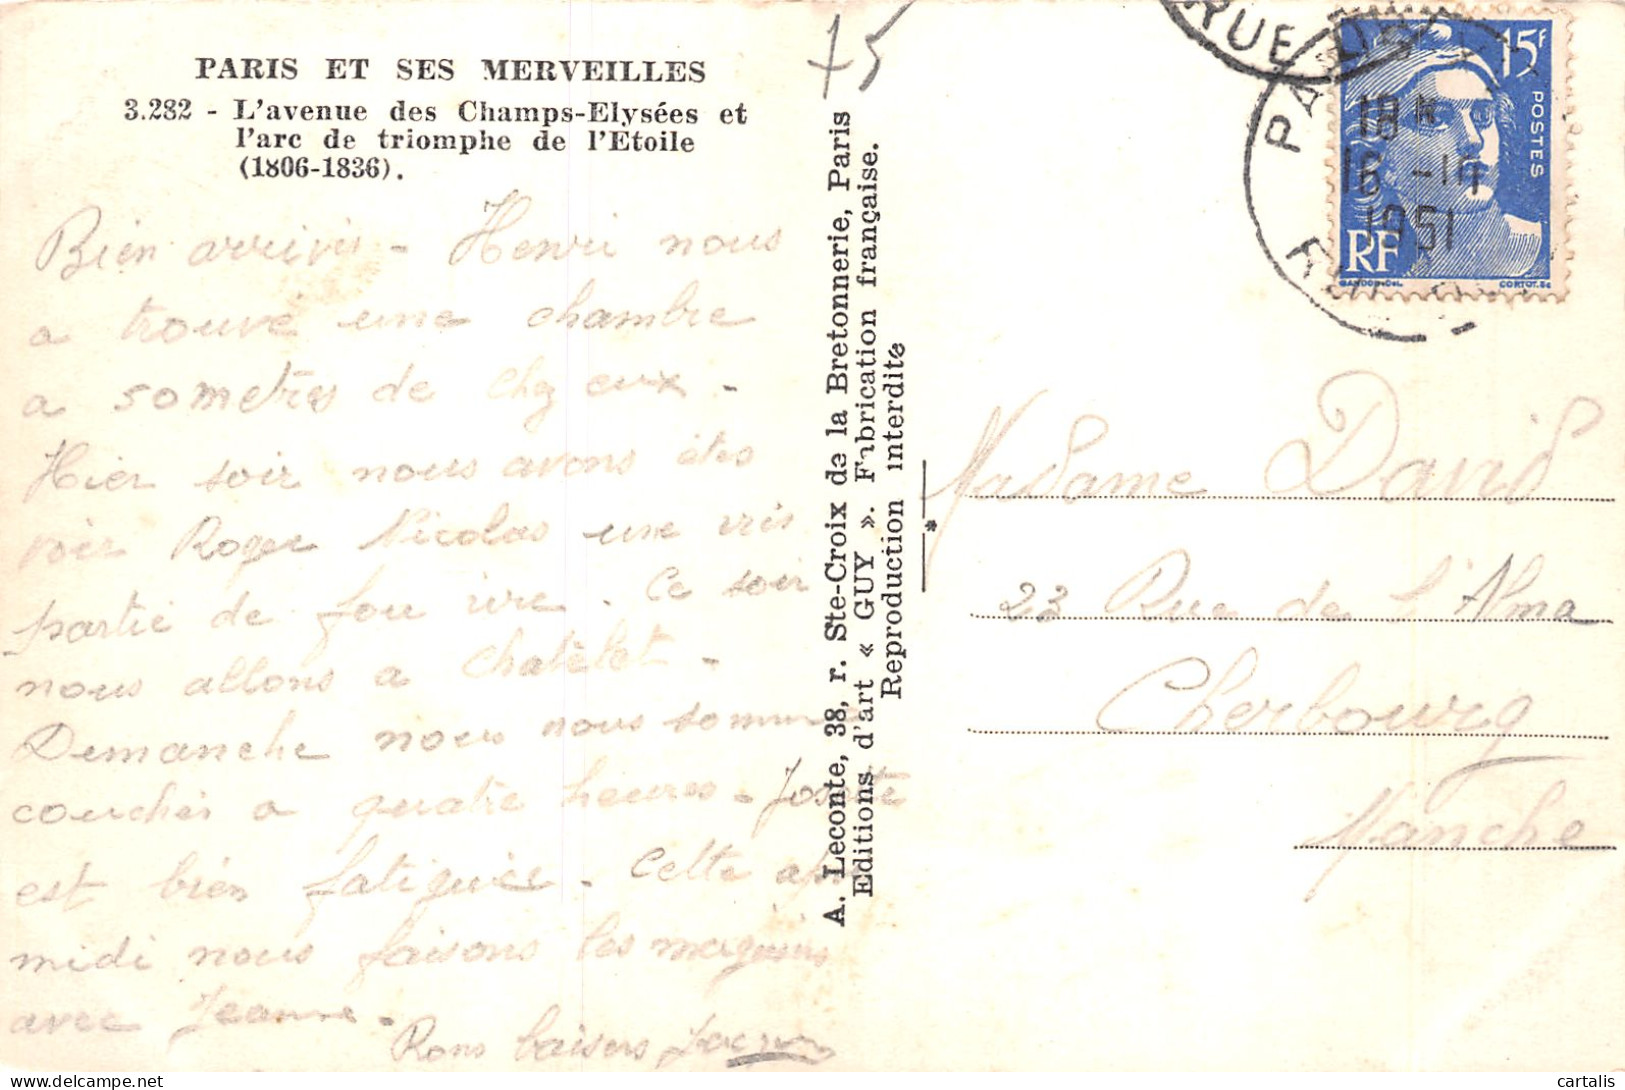 PARIS ET SES MERVEILLES
3.282 - L'avenue des Champs-Elysées et
l'arc de triomphe de l'Etoile
(1806-1836).
75
Bien arrivés - Henri nous
a trouvé une chambre
a 50 metres de chez eux -
Hier soir nous avons étés
voir Roger Nicolas une vris
partie de fou rire. Ce soir
nous allons a Chatelet -
Demanche nous nous sommes
couchés a quatre heures - Josette
est bien fatiguée - Cette après
midi nous faisons les magasins
avec Jeanne -
Bons baisers
A. Leconte, 38, r. Ste-Croix de la Bretonnerie, Paris
Editions d'art « GUY ». Fabrication française.
Reproduction interdite
*
RUE
PARIS
18H
16 -10
1951
15F
POSTES
RF
GANDON-DEL.
CORTOT.SC
Madame David
23 Rue de l'Alma
Cherbourg
Manche
cartalis